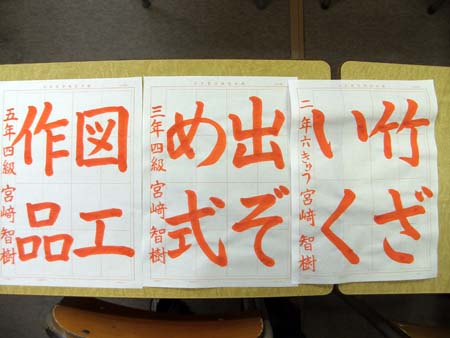 竹ざ
いく
二年六きゅう 宮崎智樹
出ぞ
め式
三年四級 宮崎智樹
図工
作品
五年四級 宮崎智樹